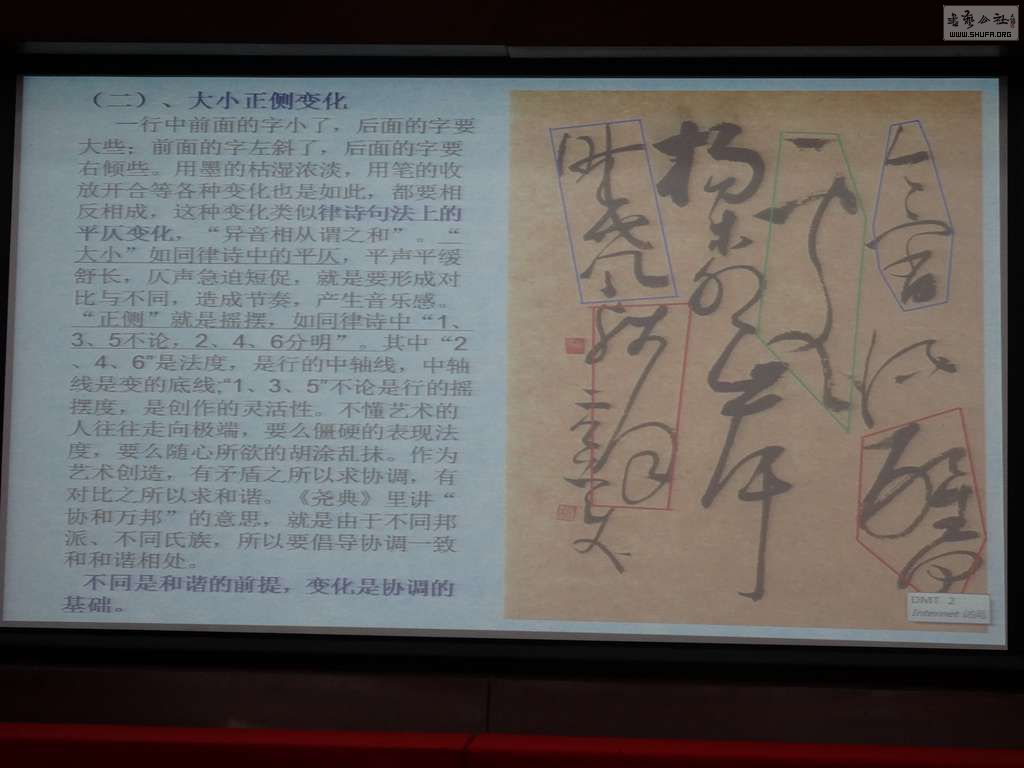 書藝公社
WWW.SHUFA.ORG
（二）、大小正侧变化
一行中前面的字小了，后面的字要
大些；前面的字左斜了，后面的字要
右倾些。用墨的枯湿浓淡，用笔的收
放开合等各种变化也是如此，都要相
反相成，这种变化类似律诗句法上的
平仄变化，“异音相从谓之和”。“
大小”如同律诗中的平仄，平声平缓
舒长，仄声急迫短促，就是要形成对
比与不同，造成节奏，产生音乐感。
“正侧”就是摇摆，如同律诗中“1、
3、5不论，2、4、6分明”。其中“2
、4、6”是法度，是行的中轴线，中轴
线是变的底线;“1、3、5”不论是行的摇
摆度，是创作的灵活性。不懂艺术的
人往往走向极端，要么僵硬的表现法
度，要么随心所欲的胡涂乱抹。作为
艺术创造，有矛盾之所以求协调，有
对比之所以求和谐。《尧典》里讲“
协和万邦”的意思，就是由于不同邦
派、不同氏族，所以要倡导协调一致
和和谐相处。
不同是和谐的前提，变化是协调的
基础。
楊柳岸
DMT 2
Internet 访问